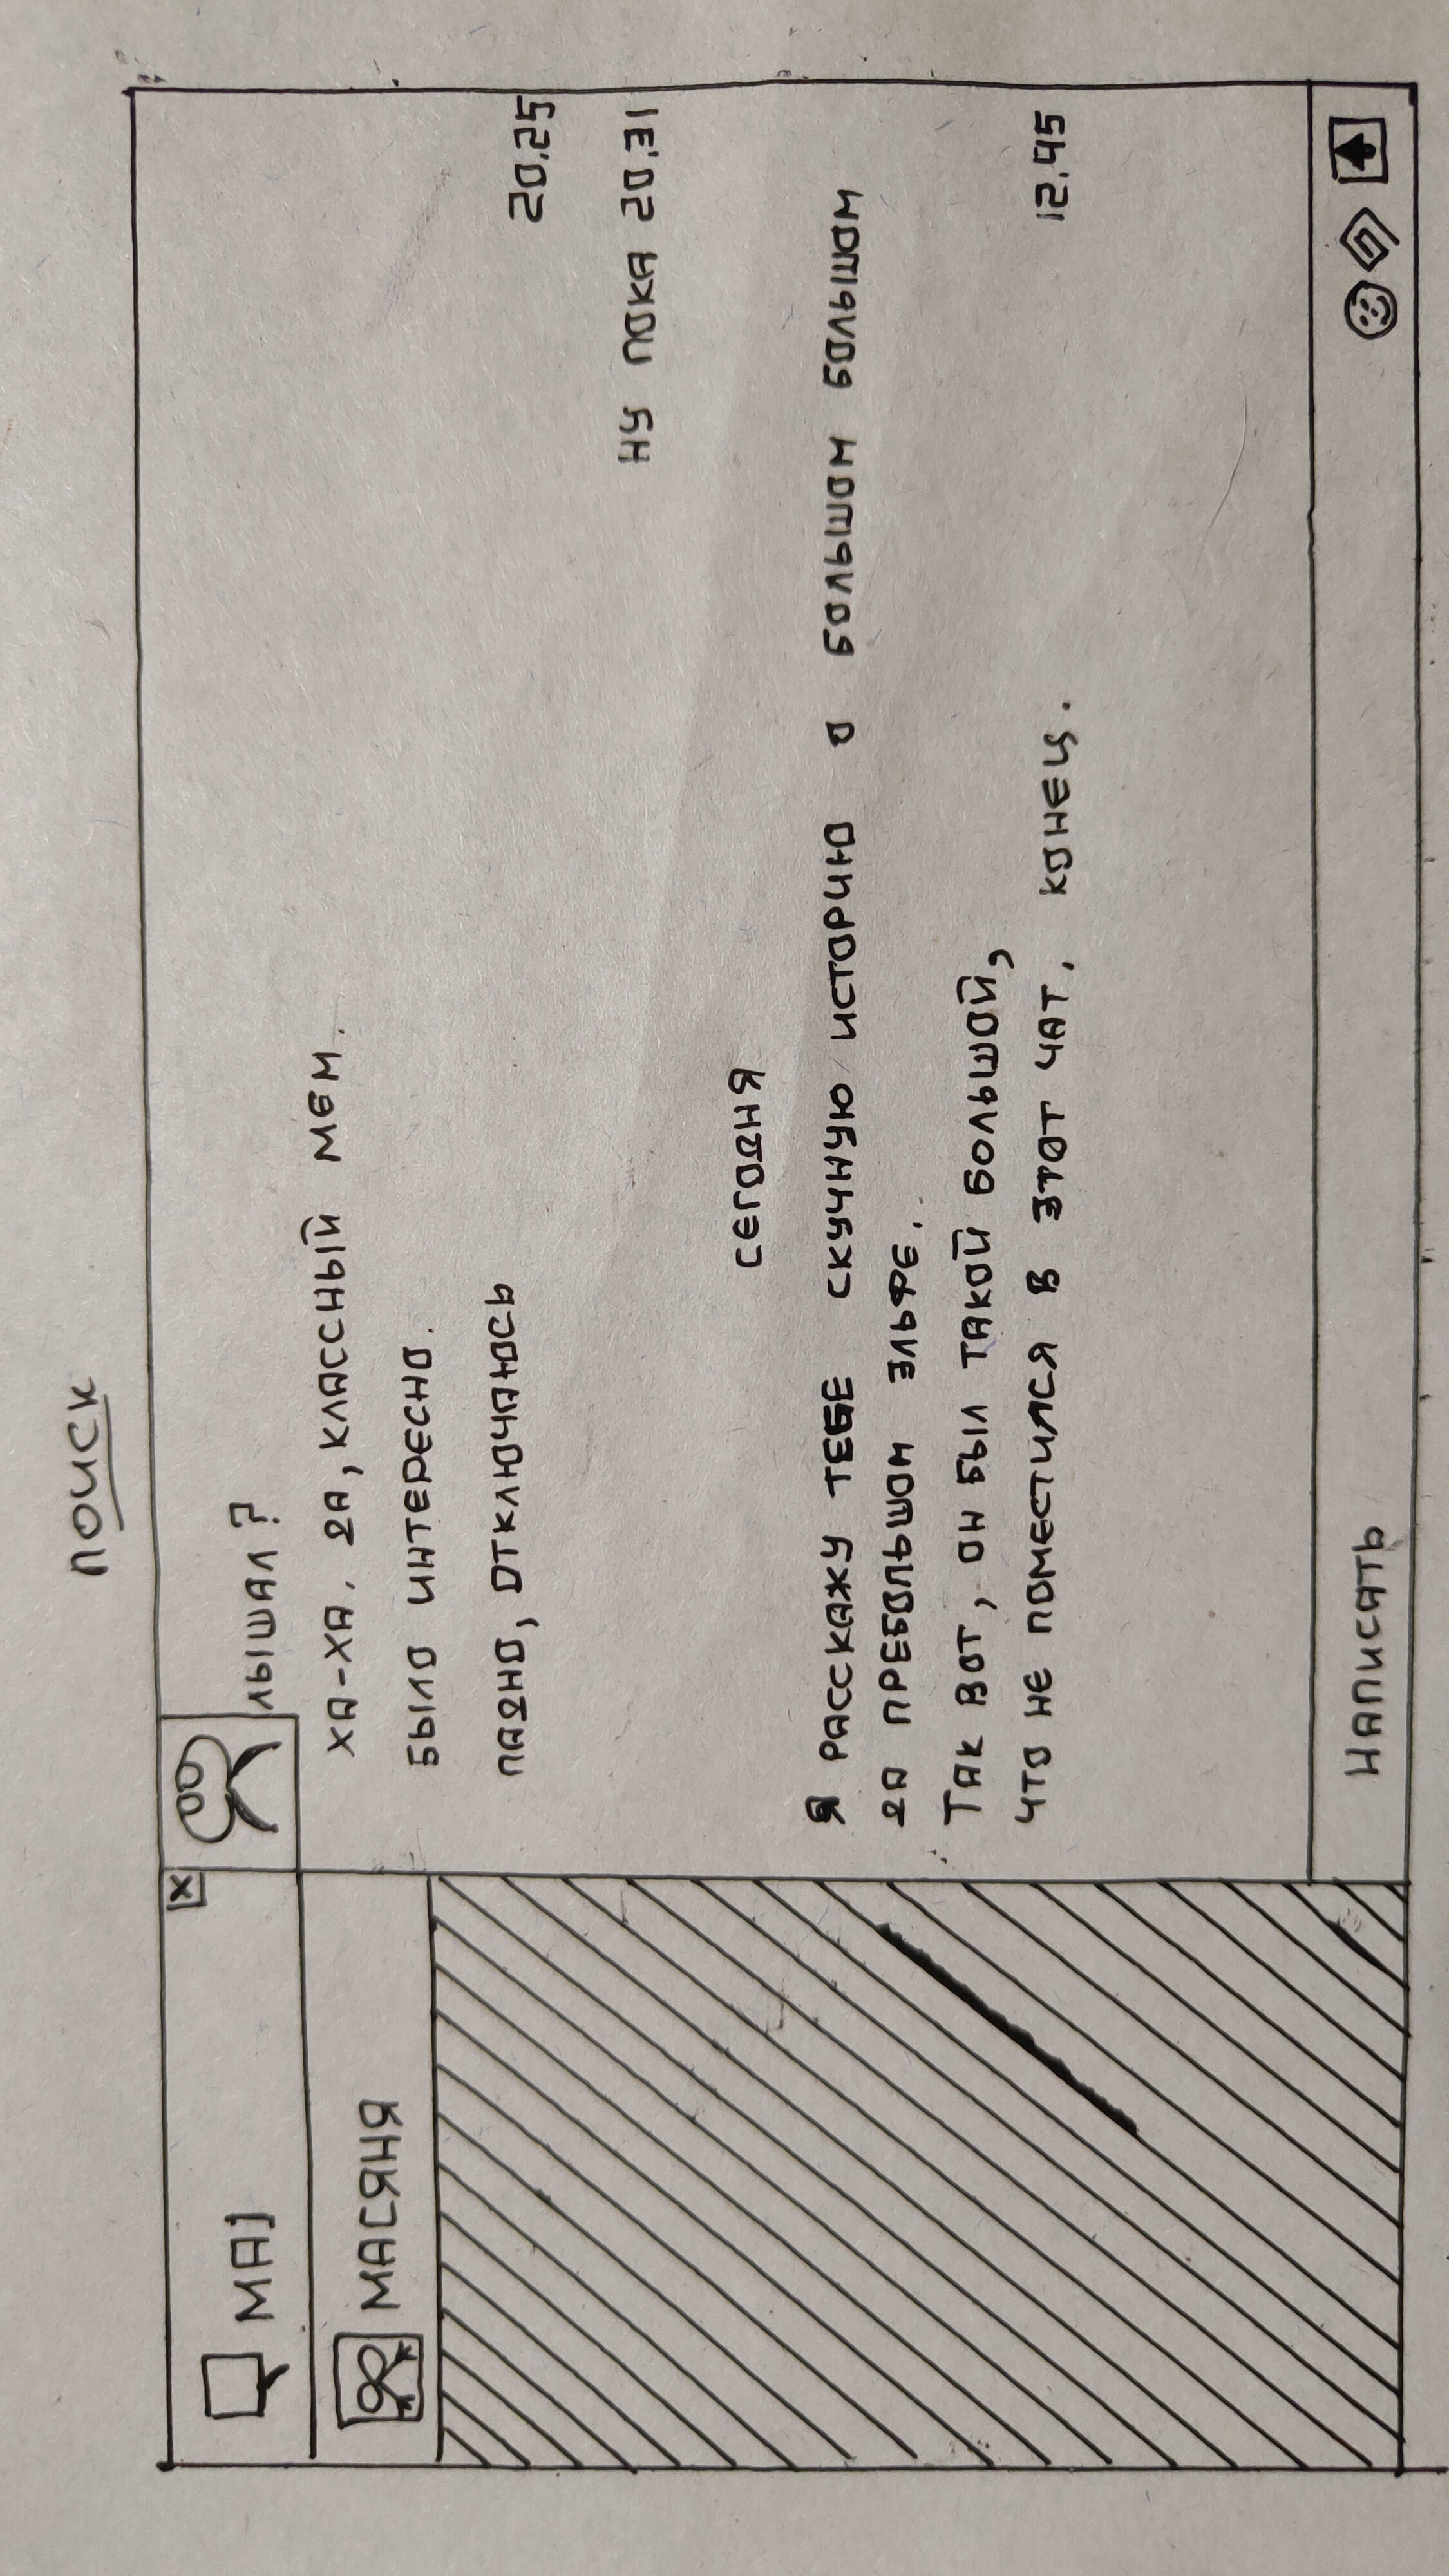 ПОИСК
МАЈ
МАСЯНЯ
ЛЫШАЛ?
ХА-ХА. ДА, КЛАССНЫЙ МЕМ.
БЫЛО ИНТЕРЕСНО.
ЛАДНО, ОТКЛЮЧАЮСЬ
20.25
НУ ПОКА 20.31
СЕГОДНЯ
Я РАССКАЖУ ТЕБЕ СКУЧНУЮ ИСТОРИЮ О БОЛЬШОМ БОЛЬШОМ
ДА ПРЕБОЛЬШОМ ЭЛЬФЕ.
ТАК ВОТ, ОН БЫЛ ТАКОЙ БОЛЬШОЙ,
ЧТО НЕ ПОМЕСТИЛСЯ В ЭТОТ ЧАТ. КОНЕЦ. 12.45
НАПИСАТЬ